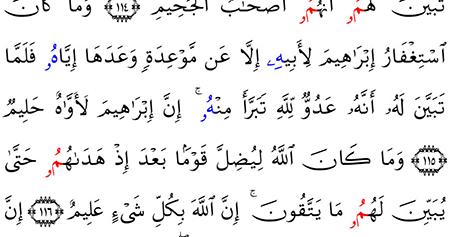 تَبَيَّنَ لَهُمُۥ أَنَّهُمُۥ أَصْحَٰبُ اُ۬لْجَحِيمِ ١١٤ وَمَا كَانَ
اَ۪سْتِغْفَارُ إِبْرَٰهِيمَ لِأَبِيهِۦ إِلَّا عَن مَّوْعِدَةٖ وَعَدَهَا إِيَّاهُۥ فَلَمَّا
تَبَيَّنَ لَهُۥ أَنَّهُۥ عَدُوٌّ لِلهِ تَبَرَّأَ مِنْهُۥ ۚ إِنَّ إِبْرَٰهِيمَ لَأَوَّٰهٌ حَلِيمٌ
١١٥ وَمَا كَانَ اَ۬للَّهُ لِيُضِلَّ قَوْمَۢا بَعْدَ إِذْ هَدَىٰهُمُۥ حَتَّىٰ
يُبَيِّنَ لَهُمُۥ مَا يَتَّقُونَ ۚ إِنَّ اَ۬للَّهَ بِكُلِّ شَےْءٍ عَلِيمٌ ١١٦ إِنَّ